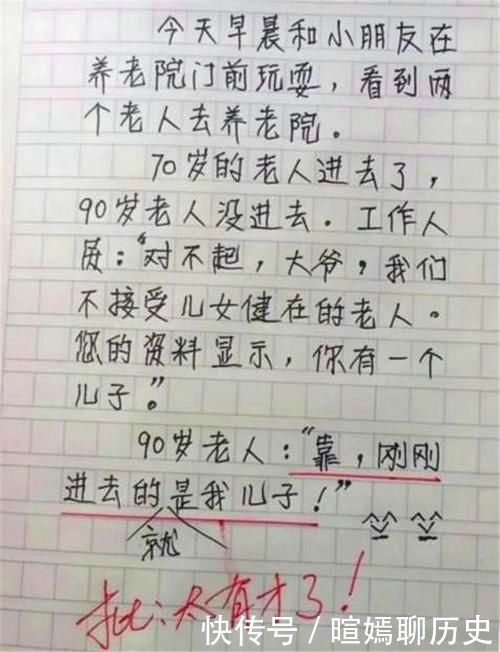 今天早晨和小朋友在
养老院门前玩耍，看到两
个老人去养老院。
70岁的老人进去了，
90岁老人没进去．工作人
员："对不起，大爷，我们
不接受儿女健在的老人。
您的资料显示，你有一个
儿子。"
90岁老人："靠，刚刚
进去的是我儿子！"
就
批：太有才了！
快传号／暄嫣聊历史